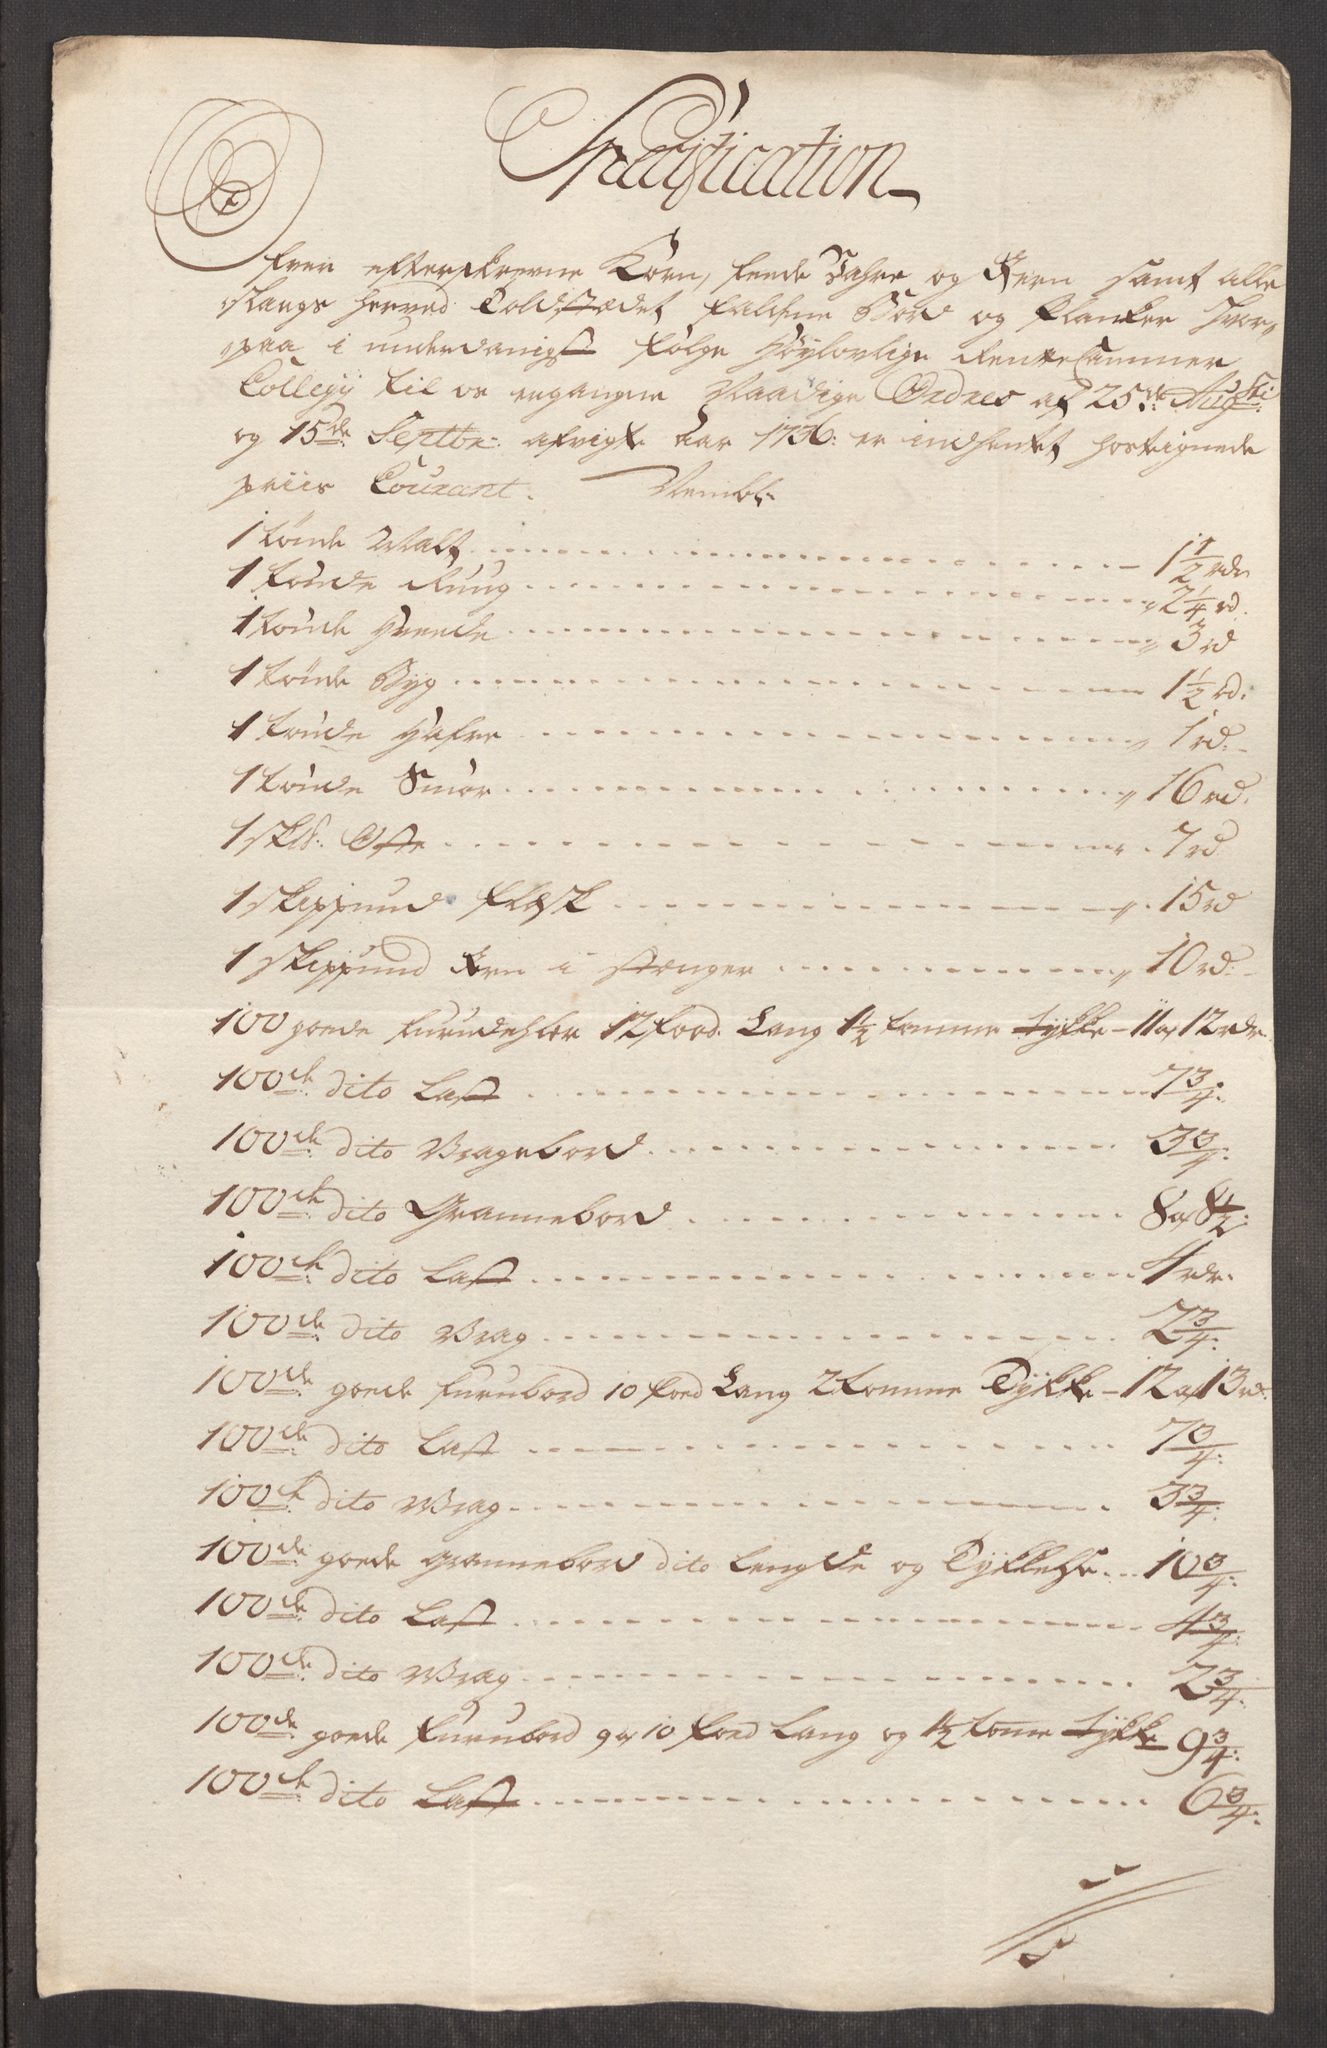 Specification
Over efterskrevne Korn, feede Vahre og Jern samt alle
slaugs herved Toldstædet faldene Bord og Planker hvor
paa i underdanigst følge Høylovlige Rente Cammer
Collegij til os ergangne Naadige Ordres af 25de Augusti
og 15de Septbr: afvigte Aar 1736: er indhentet hostegnede
priis Courant. Nembl:
1 tønde Malt 1 1/2 rdr
1 tønde Ruug 2 1/4 rd.
1 tønde Hvede 3 rd
1 tønde Byg 1 1/2 rd:
1 tønde Hafre 1 rd:
1 tønde Smør 16 rd.
1 sk℔: Oste 7 rd
1 skippund Flæsk 15 rd
1 skippund Jern i stænger 10 rd:
100 goede furudehler 12 food Lang 1 1/2 tomme tykke - 11 a 12 rdr.
100de dito Last 7 3/4:
100de dito Vragebord 3 3/4:
100de dito Grannebord 8 a 8 1/2:
100de dito Last 4 rdr.
100de dito Vrag 2 3/4:
100de goede furubord 10 foed Lang 2 tomme Tykke - 12 a 13 rd.
100de dito Last 7 3/4:
100de dito Vrag 3 3/4:
100de goede grannebord dito Lengde og Tykkelse 10 3/4:
100de dito Last 4 3/4:
100de dito Vrag 2 3/4:
100de goede furubord 9 a 10 foed Lang og 1 1/2 tome tykke 9 3/4:
100de dito Last 6 3/4: